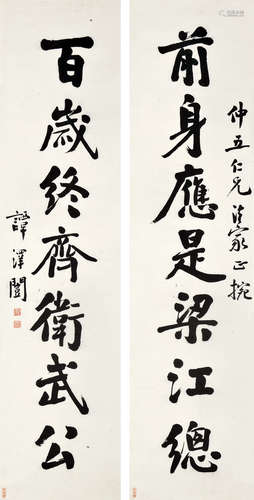 前身應是梁江總
仲五仁兄法家正捥
百歲終齊衛武公
譚澤闓